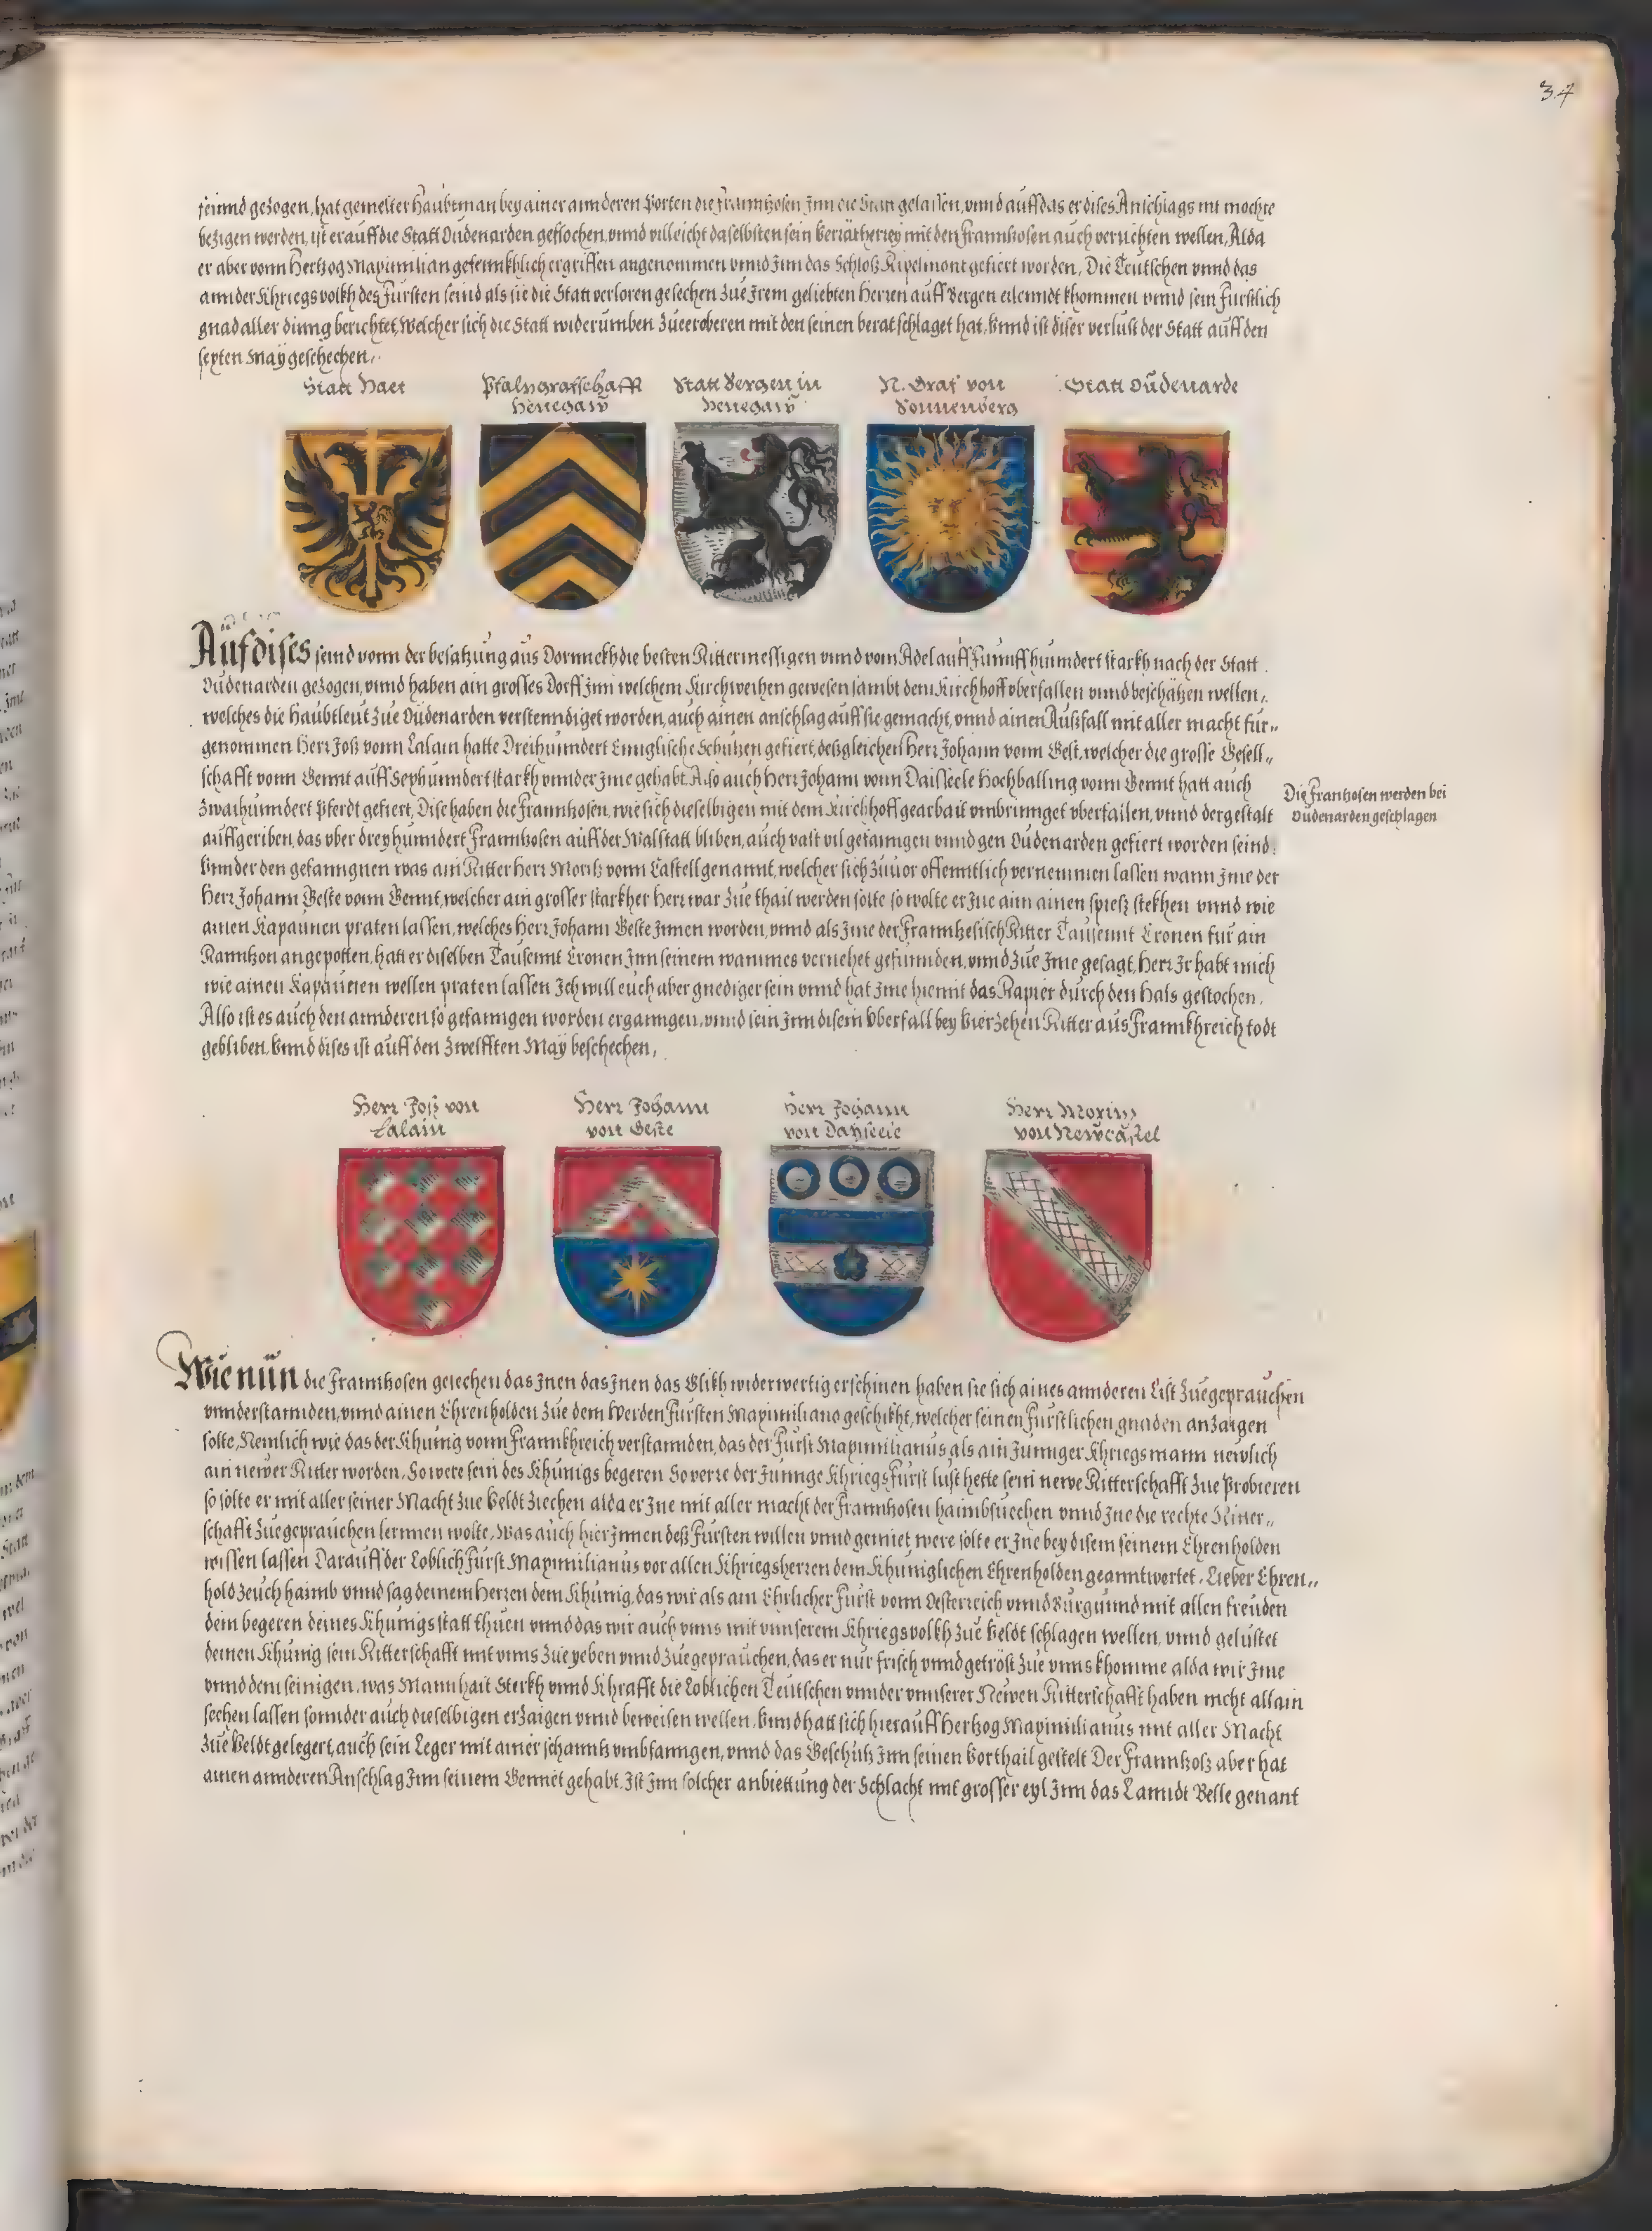 37
feinnd gezogen, hat gemelter Haubtman bey ainer annderen Porten die Frannzosen Inn die Statt gelassen, vnnd auff das er dises Anschlags nit mochte
bezigen werden, ist er auff die Statt Oudenarden geflochen, vnnd villeicht daselbsten sein Verrätherey mit den Frannzosen auch verrichten wellen, Alda
er aber vonn Hertzog Maximilian gefenkhlich ergriffen angenommen vnnd Inn das Schloß Ripelmont gefiert worden, Die Teutschen vnnd das
annder Khriegsvolkh des Fürsten seind als sie die Statt verloren gesechen Zue Irem geliebten Herren auff Bergen eilenndt khommen vnnd sein fürstlich
gnad aller dinng berichtet, Welcher sich die Statt widerumben Zueeroberen mit den seinen beratschlaget hat, Vnnd ist diser verlust der Statt auff den
sexten May geschechen,
Statt Haet
Pfalngrafschafft
Henegaw
Statt Bergen in
Henegaw
N. Graf von
Sonnenberg
Statt Oudenarde
Auf dises seind vonn der besatzung aus Dornnekh die besten Rittermessigen vnnd vom Adel auff Fünnffhunndert starkh nach der Statt
Oudenarden gezogen, vnnd haben ain grosses Dorff Inn welchem Kirchweihen gewesen sambt dem Kirchhoff vberfallen vnnd beschätzen wellen,
welches die Haubtleut Zue Oudenarden verstenndiget worden, auch ainen anschlag auff sie gemacht, vnnd ainen Außfall mit aller macht für=
genommen Herr Joß vonn Lalain hatte Dreihunndert Ennglische Schützen gefiert, deßgleichen Herr Johann vonn Gest, welcher die grosse Gesell=
schafft vonn Gennt auff Sexhunndert starkh vnnder Ime gehabt, Also auch Herr Johann vonn Daisseele Hochballing vonn Gennt hatt auch
Zwaihunndert Pferdt gefiert, Dise haben die Frannzosen, wie sich dieselbigen mit dem Kirchhoff gearbait vmbrinnget vberfallen, vnnd dergestalt
Die Franzosen werden bei
Oudenarden geschlagen
auffgeriben, das vber dreyhunndert Frannzosen auff der Walstatt bliben, auch vast vil gefanngen vnnd gen Oudenarden gefiert worden seind.
Vnnder den gefanngnen was ain Ritter Herr Moritz vonn Castell genannt, welcher sich Zuuor offenntlich vernemmen lassen wann Ime der
Herr Johann Geste vonn Gennt, welcher ain grosser starkher Herr war Zue thail werden solte so wolte er Ine ann ainen spiesz stekhen vnnd wie
ainen Kapaunen praten lassen, welches Herr Johann Geste Innen worden, vnnd als Ime der Frannzesisch Ritter Tausennt Cronen für ain
Rannzon angepotten, hatt er diselben Tausennt Cronen Inn seinem wammes vernehet gefunnden, vnnd Zue Ime gesagt, Herr Ir habt mich
wie ainen Kapaunen wellen praten lassen Ich will euch aber gnediger sein vnnd hat Ime hiemit das Rapier durch den Hals gestochen.
Also ist es auch den annderen so gefanngen worden erganngen, vnnd sein Inn disem Vberfall bey Vierzehen Ritter aus Frannkhreich todt
gebliben, Vnnd dises ist auff den Zwelfften May beschechen,
Herr Joß von
Lalain
Herr Johann
von Geste
Herr Johann
von Daysseele
Herr Moritz
von Newcastel
Wie nun die Frannzosen gesechen das Inen das Inen das Glikh widerwertig erschinen haben sie sich aines annderen List Zuegeprauchen
vnnderstannden, vnnd ainen Ehrenholden Zue dem Werden Fürsten Maximiliano geschikht, welcher seinen Fürstlichen gnaden anzaigen
solte, Nemlich wie das der Khünig vonn Frannkhreich verstannden, das der Fürst Maximilianus als ain Junnger Khriegsmann newlich
ain newer Ritter worden, So were sein des Khünigs begeren So verre der Junnge Khriegs Fürst lust hette sein newe Ritterschafft Zue Probieren
so solte er mit aller seiner Macht Zue Veldt Ziechen alda er Ine mit aller macht der Frannzosen haimbsuechen vnnd Ine die rechte Ritter=
schafft Zuegeprauchen lernnen wolte, Was auch hier Innen deß Fürsten willen vnnd gemiet were solte er Ine bey disem seinem Ehrenholden
wissen lassen Darauff der Loblich Fürst Maximilianus vor allen Khriegsherren dem Khüniglichen Ehrenholden geanntwortet, Lieber Ehren=
hold Zeuch haimb vnnd sag deinem Herren dem Khünig, das wir als ain Ehrlicher Fürst vonn Oesterreich vnnd Burgunnd mit allen freuden
dem begeren deines Khünigs statt thuen vnnd das wir auch vnns mit vnnserem Khriegsvolkh Zue Veldt schlagen wellen, vnnd gelustet
deinen Khünig sein Ritterschafft mit vnns Zue yeben vnnd Zuegeprauchen, das er nur frisch vnnd getröst Zue vnns khomme alda wir Ime
vnnd den seinigen, was Mannhait Sterkh vnnd Khrafft die Loblichen Teutschen vnnder vnnserer Newen Ritterschafft haben nicht allain
sechen lassen sonnder auch dieselbigen erzaigen vnnd beweisen wellen, Vnnd hatt sich hierauff Hertzog Maximilianus mit aller Macht
Zue Veldt gelegert, auch sein Leger mit ainer schanntz vmbfanngen, vnnd das Geschütz Inn seinen Vorthail gestelt Der Frannzoß aber hat
ainen annderen Anschlag Inn seinem Gemiet gehabt, Ist Inn solcher anbiettung der Schlacht mit grosser eyl Inn das Lanndt Belle genant